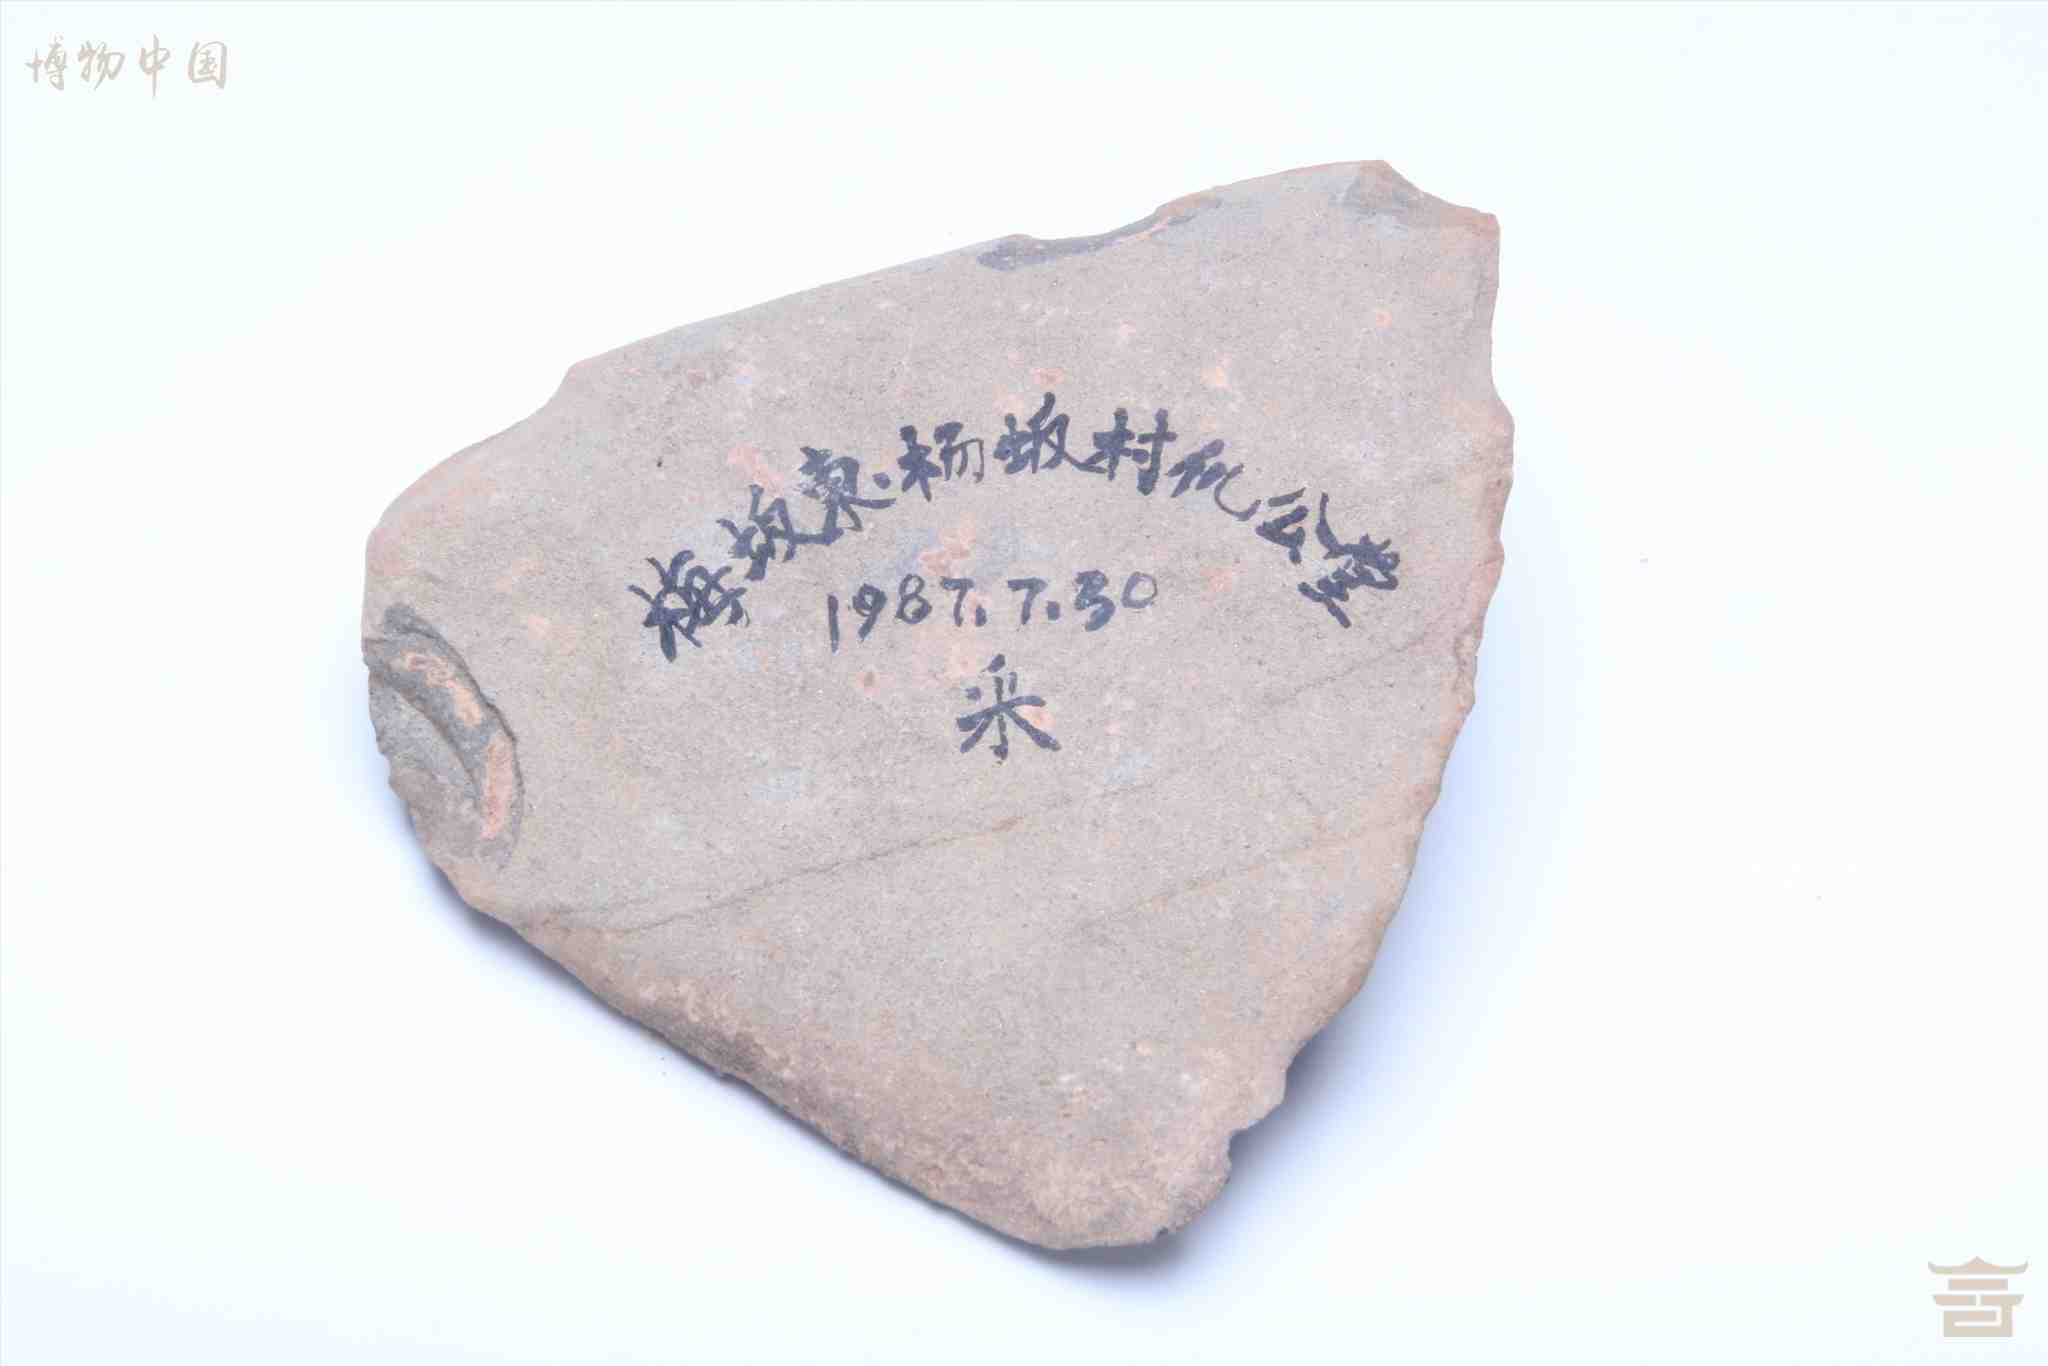 博物中国
梅坂泉·杨坂村瓦公
1987.7.30
采